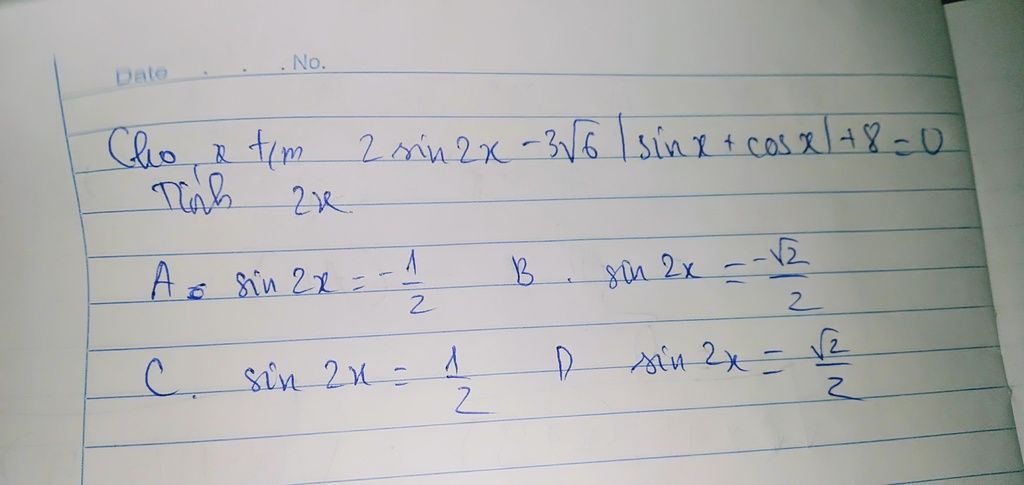 Date . . . No.
Cho x t/m 2 sin 2x - 3√6 |sin x + cos x| + 8 = 0
Tính 2x.
A. sin 2x = -1/2 B. sin 2x = -√2/2
C. sin 2x = 1/2 D sin 2x = √2/2